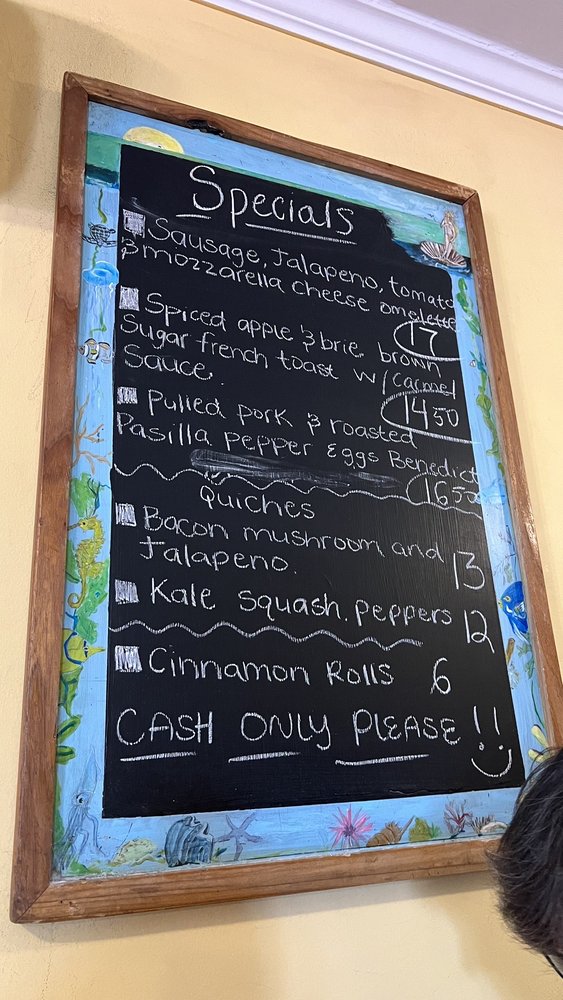 Specials
Sausage, Jalapeno, tomato
& mozzarella cheese omelette
17
Spiced apple & brie brown
Sugar french toast w/ Carmel
Sauce.
1450
Pulled pork & roasted
Pasilla pepper Eggs Benedict
1650
Quiches
Bacon mushroom and
Jalapeno.
13
Kale squash. peppers 12
Cinnamon Rolls 6
CASH ONLY PLEASE !!